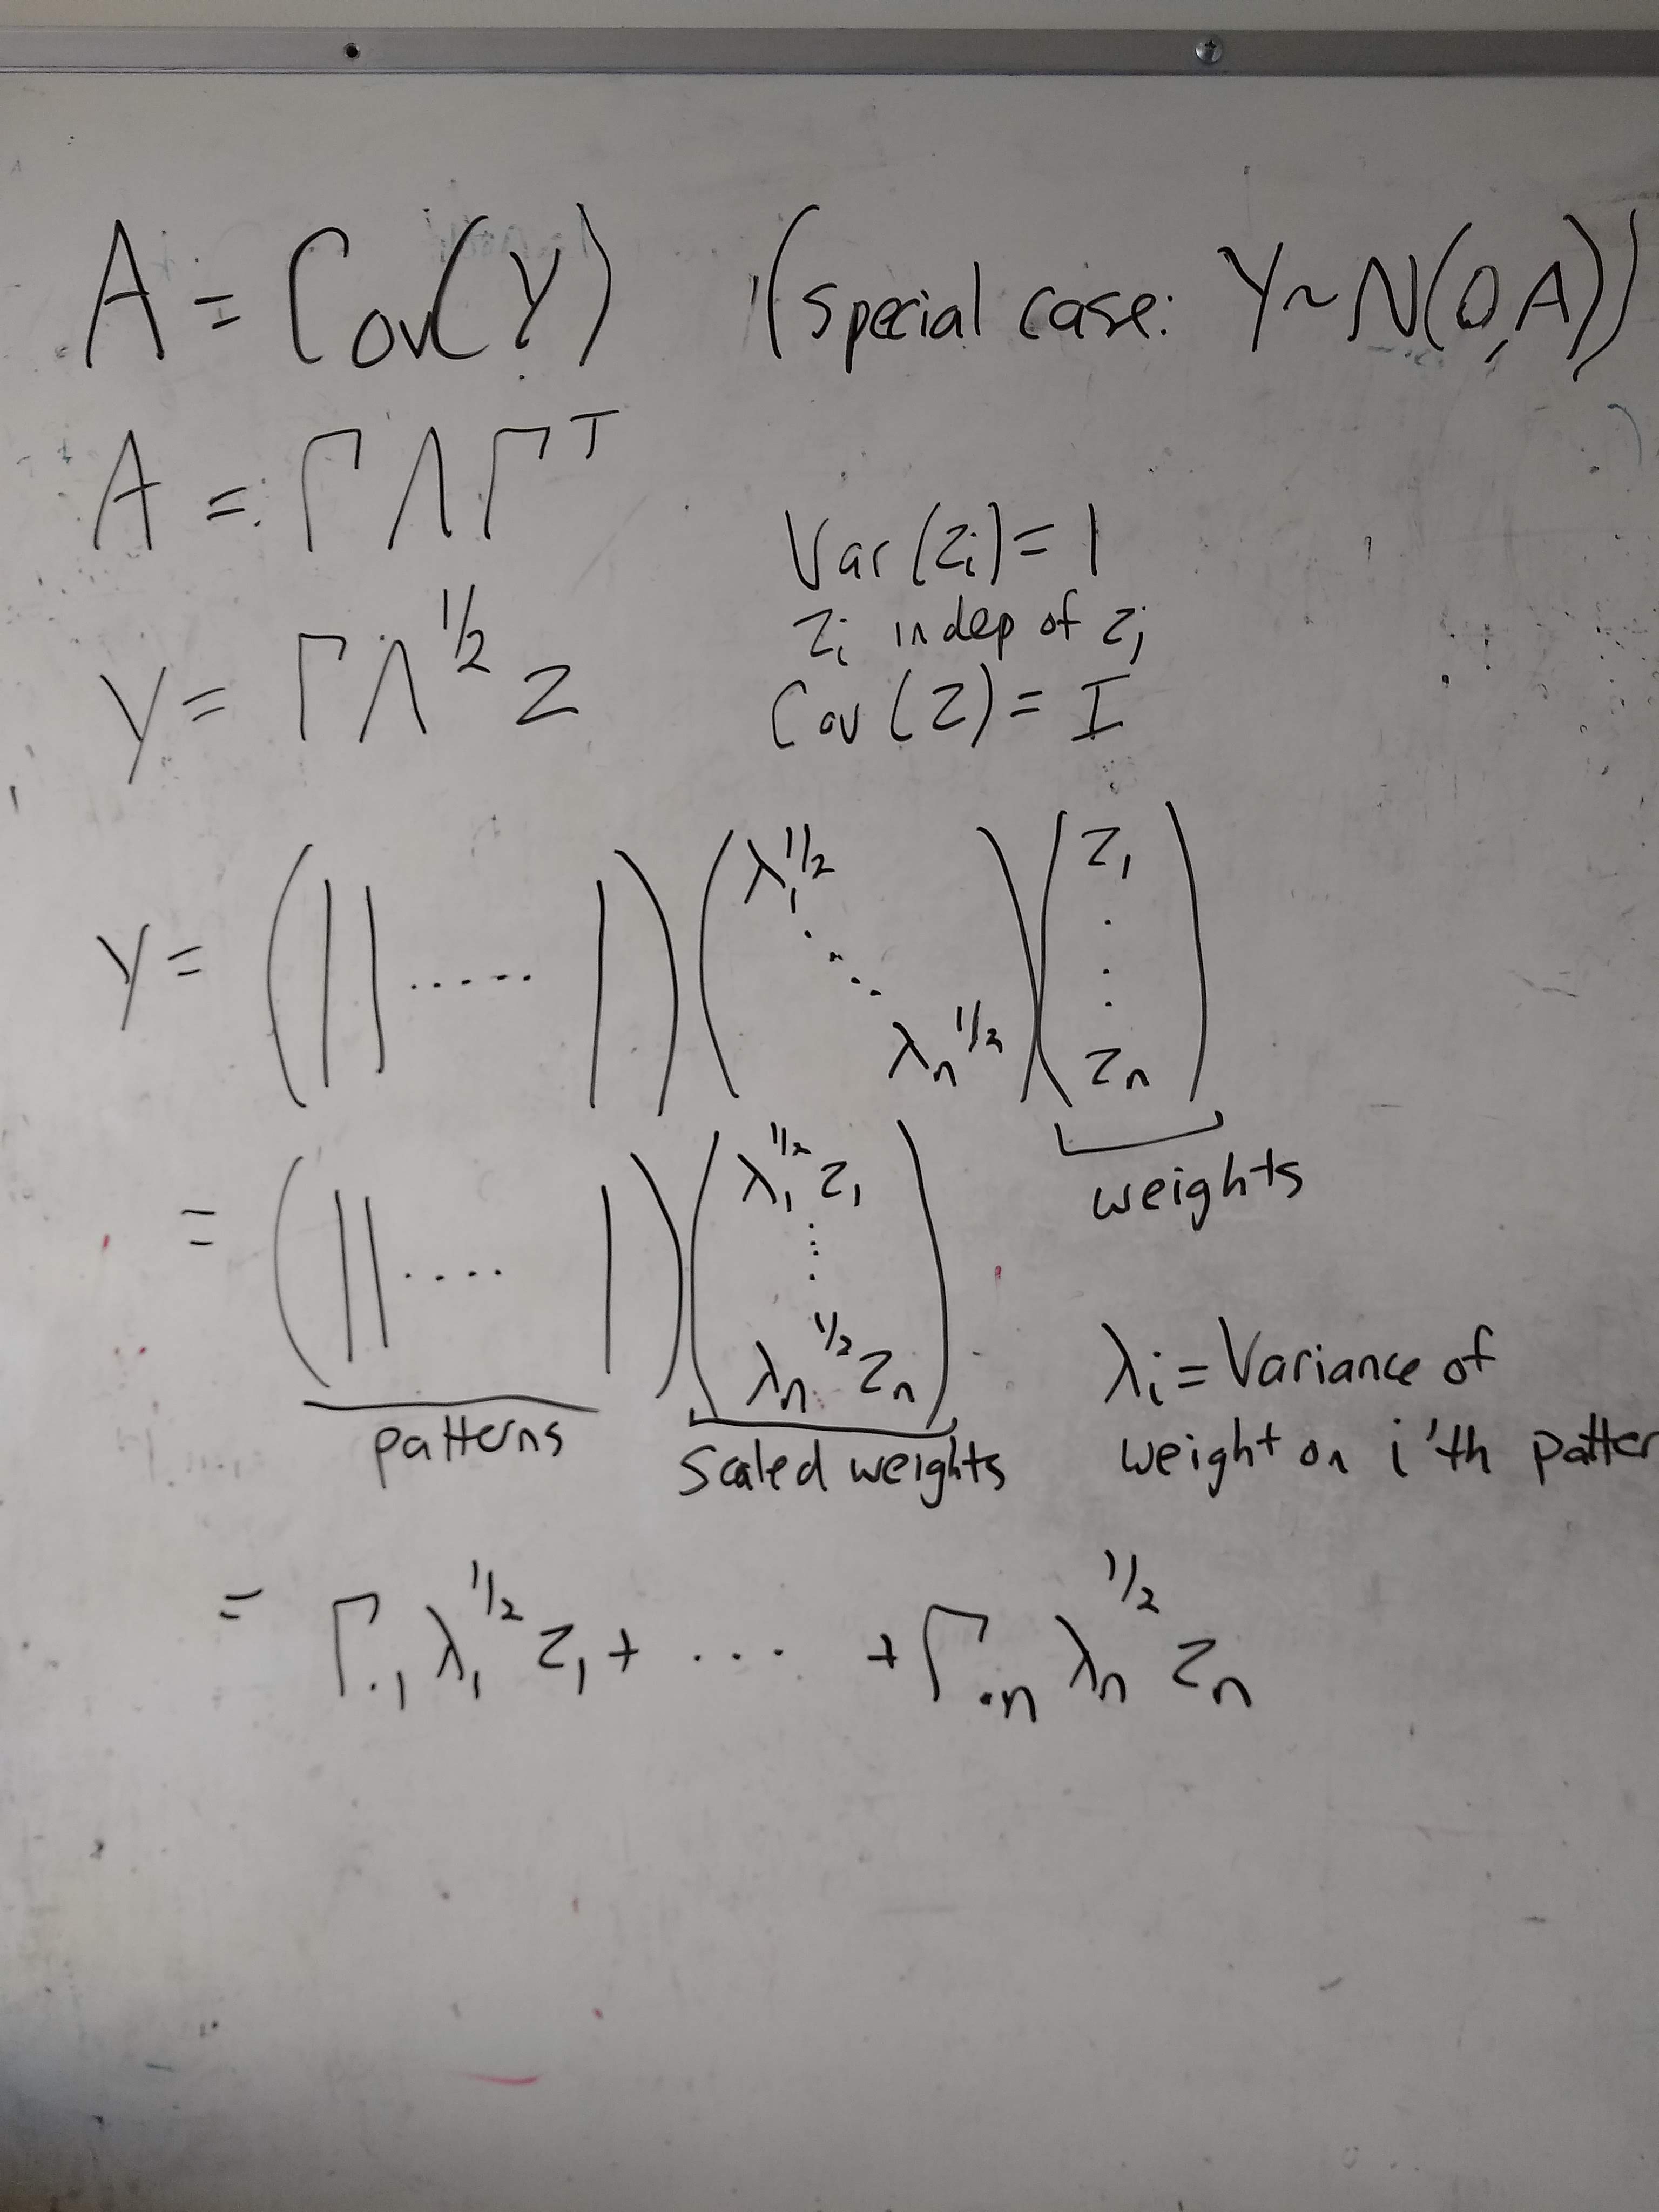 A = Cov(Y) (special case: Y~N(0,A))
A = Γ Λ Γ^T
Var(z_i) = 1
z_i indep of z_j
Y = Γ Λ^{1/2} z
Cov(z) = I
Y = ( | | ..... | ) ( λ_1^{1/2} ⋱ λ_n^{1/2} ) ( z_1 ⋮ z_n )
weights
= ( | | .... | ) ( λ_1^{1/2} z_1 ⋮ λ_n^{1/2} z_n )
patterns
scaled weights
λ_i = Variance of
weight on i'th patter
= Γ_{·1} λ_1^{1/2} z_1 + ... + Γ_{·n} λ_n^{1/2} z_n